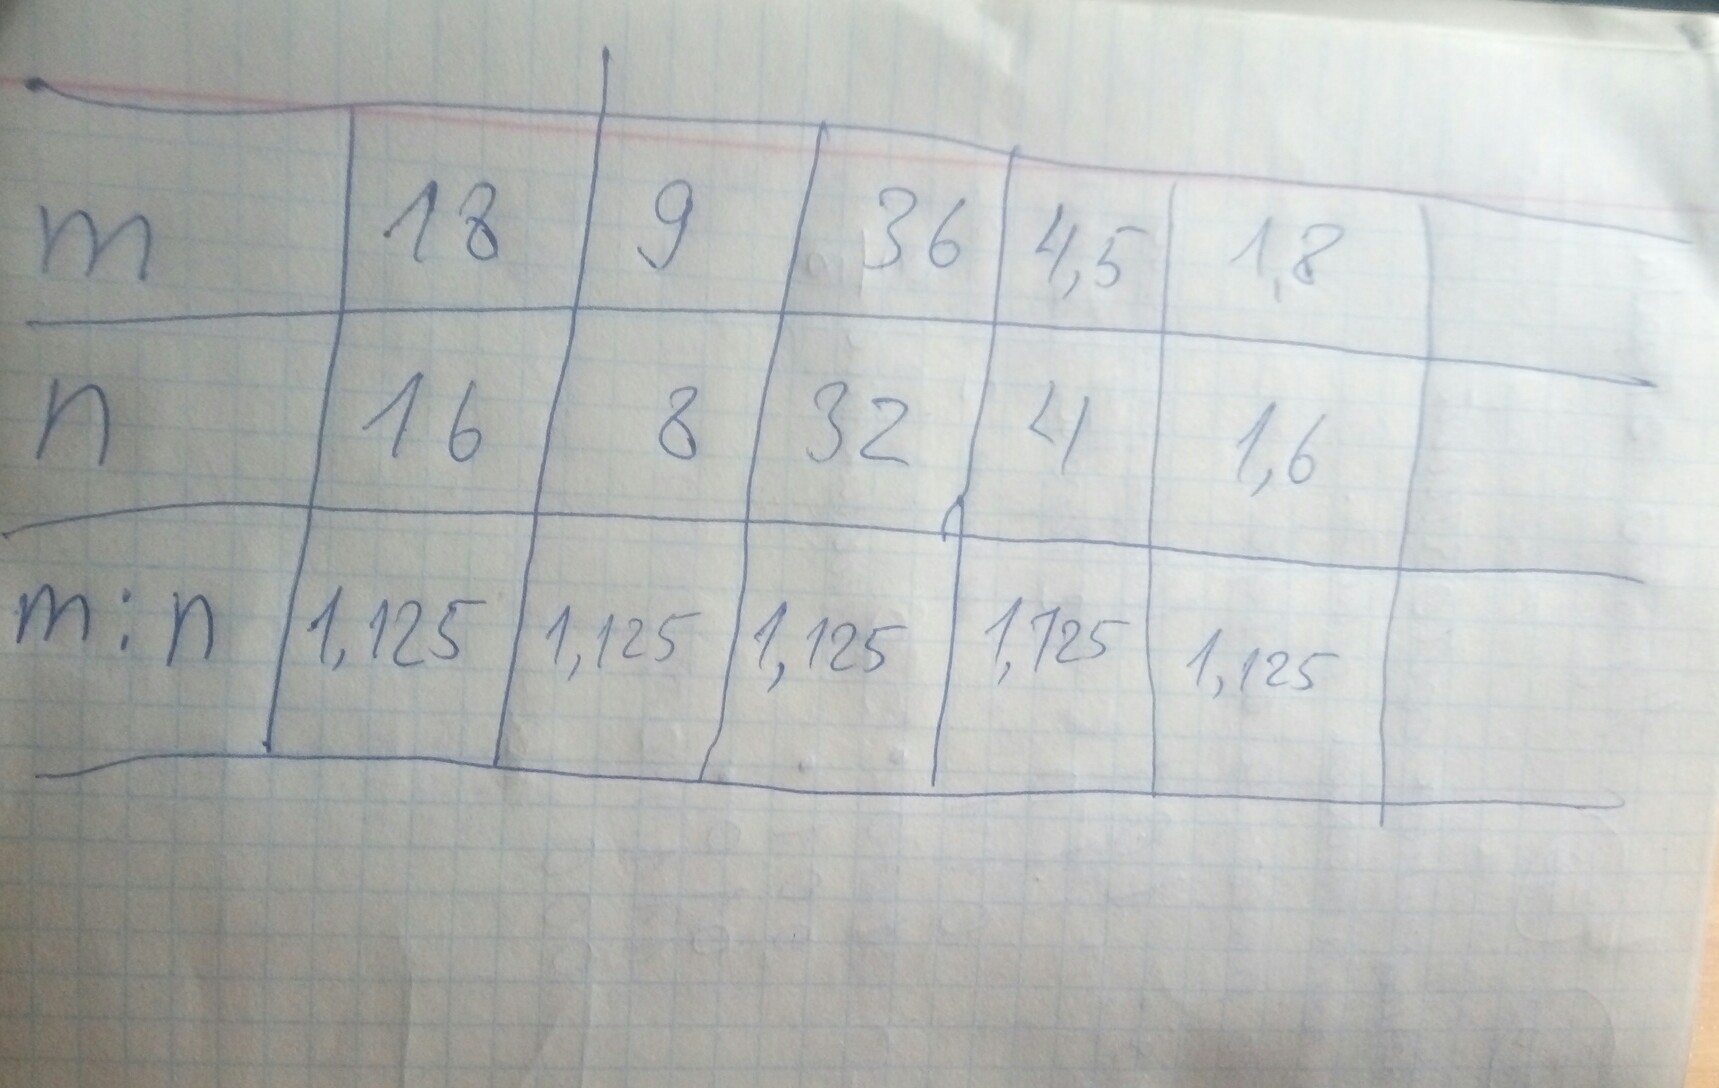 m 18 9 36 4,5 1,8
n 16 8 32 4 1,6
m:n 1,125 1,125 1,125 1,125 1,125